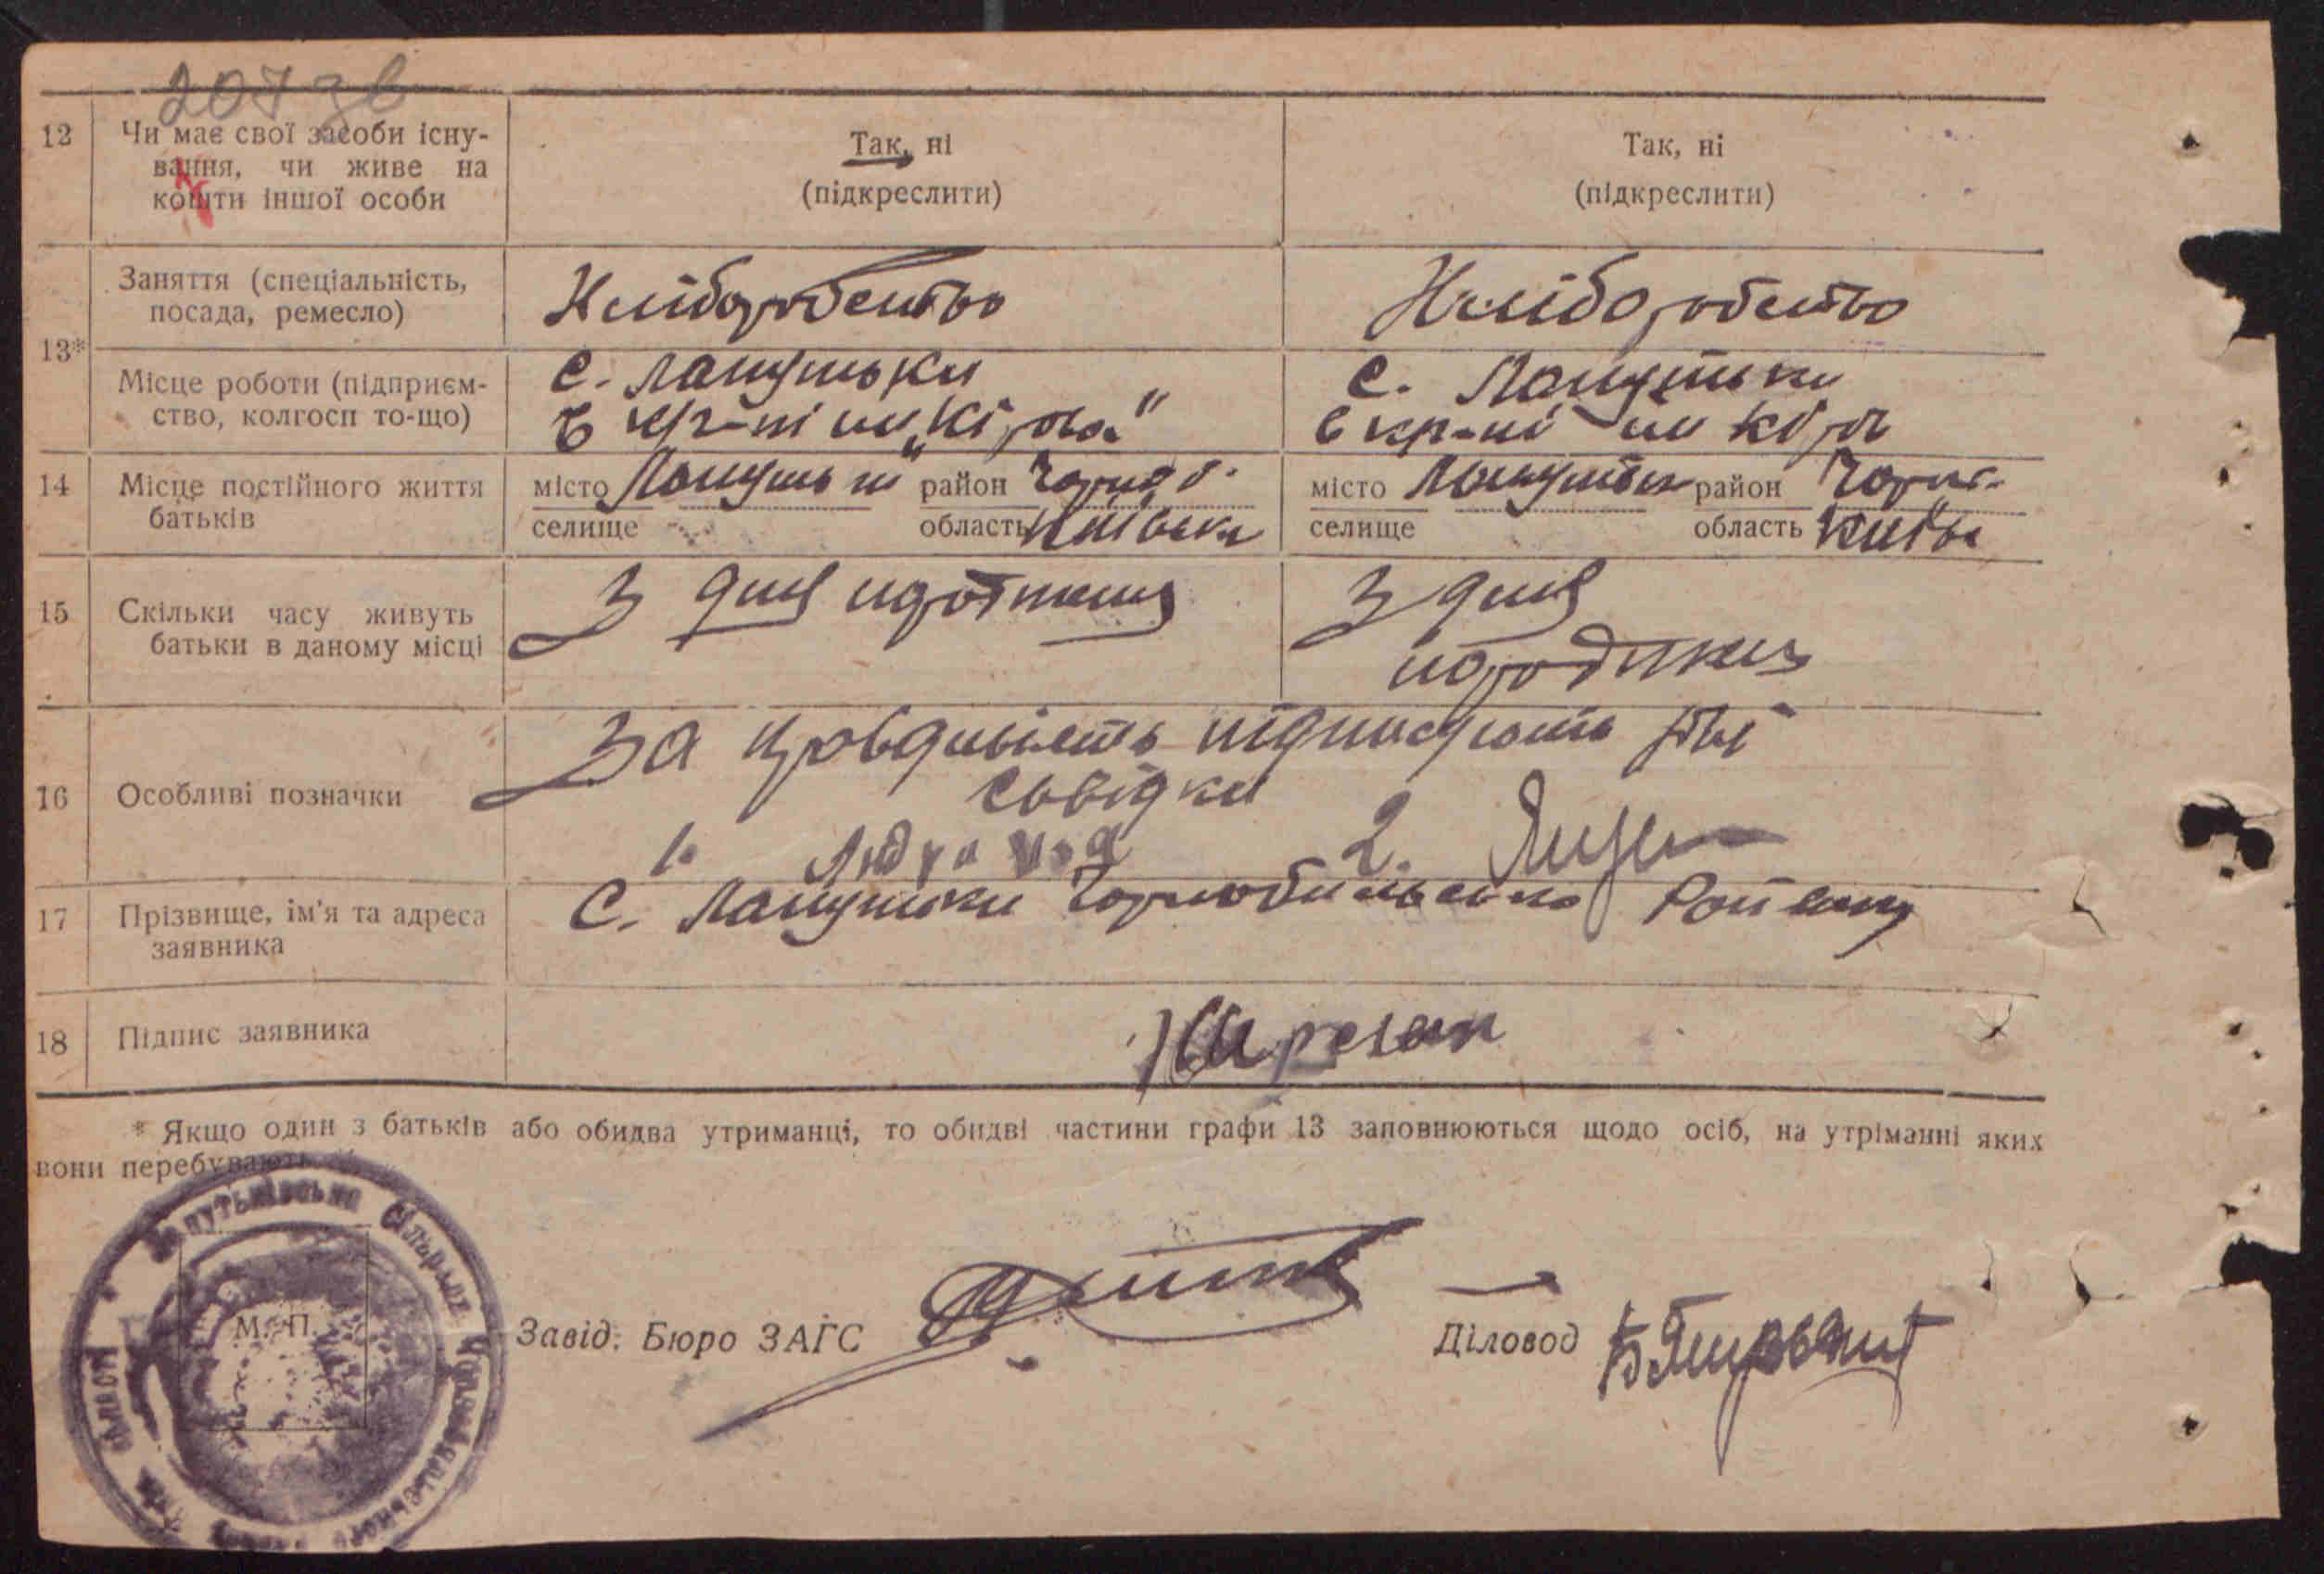 207 зв
12 Чи має свої засоби існу-
вання, чи живе на
кошти іншої особи
Так, ні
(підкреслити)
Так, ні
(підкреслити)
13*
Заняття (спеціальність,
посада, ремесло)
Хліборобство
Хліборобство
Місце роботи (підприєм-
ство, колгосп то-що)
с. Лапутьки
в кр-пі ім. „Кірова"
с. Лапутьки
в кр-пі ім Кіров
14 Місце постійного життя
батьків
місто Лапутьки район Чорноб.
селище область Київськ
місто Лапутьки район Чорно.
селище область Київс
15 Скільки часу живуть
батьки в даному місці
З дня народження
З дня
народження
16 Особливі позначки
За правдивість підписують
свідки
1. 2.
17 Прізвище, ім'я та адреса
заявника
с. Лапутьки Чорнобильсько Району
18 Підпис заявника
* Якщо один з батьків або обидва утриманці, то обидві частини графи 13 заповнюються щодо осіб, на утріманні яких
вони перебувають
Лапутьківська сільрада Чорнобильського
М. П.
Завід. Бюро ЗАГС
Діловод